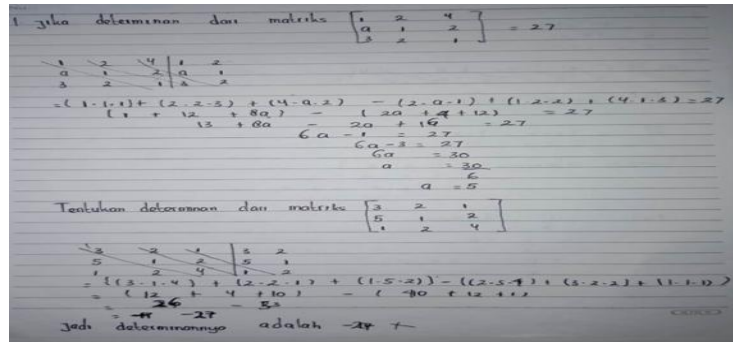 1 jika determinan dari matriks [1 2 4 = 27
a 1 2
3 2 1]
1 2 4 | 1 2
a 1 2 | a 1
3 2 1 | 3 2
= (1·1·1) + (2·2·3) + (4·a·2) - (2·a·1) + (1·2·2) + (4·1·3) = 27
(1 + 12 + 8a) - (2a + 4 + 12) = 27
13 + 8a - 2a + 16 = 27
6a - = 27
6a - 3 = 27
6a = 30
a = 30
6
a = 5
Tentukan determinan dari matriks [3 2 1
5 1 2
1 2 4]
3 2 1 | 3 2
5 1 2 | 5 1
1 2 4 | 1 2
= ((3·1·4) + (2·2·1) + (1·5·2)) - ((2·5·4) + (3·2·2) + (1·1·1))
= (12 + 4 + 10) - (40 + 12 + 1)
= 26 - 53
= -27
Jadi determinannya adalah -27